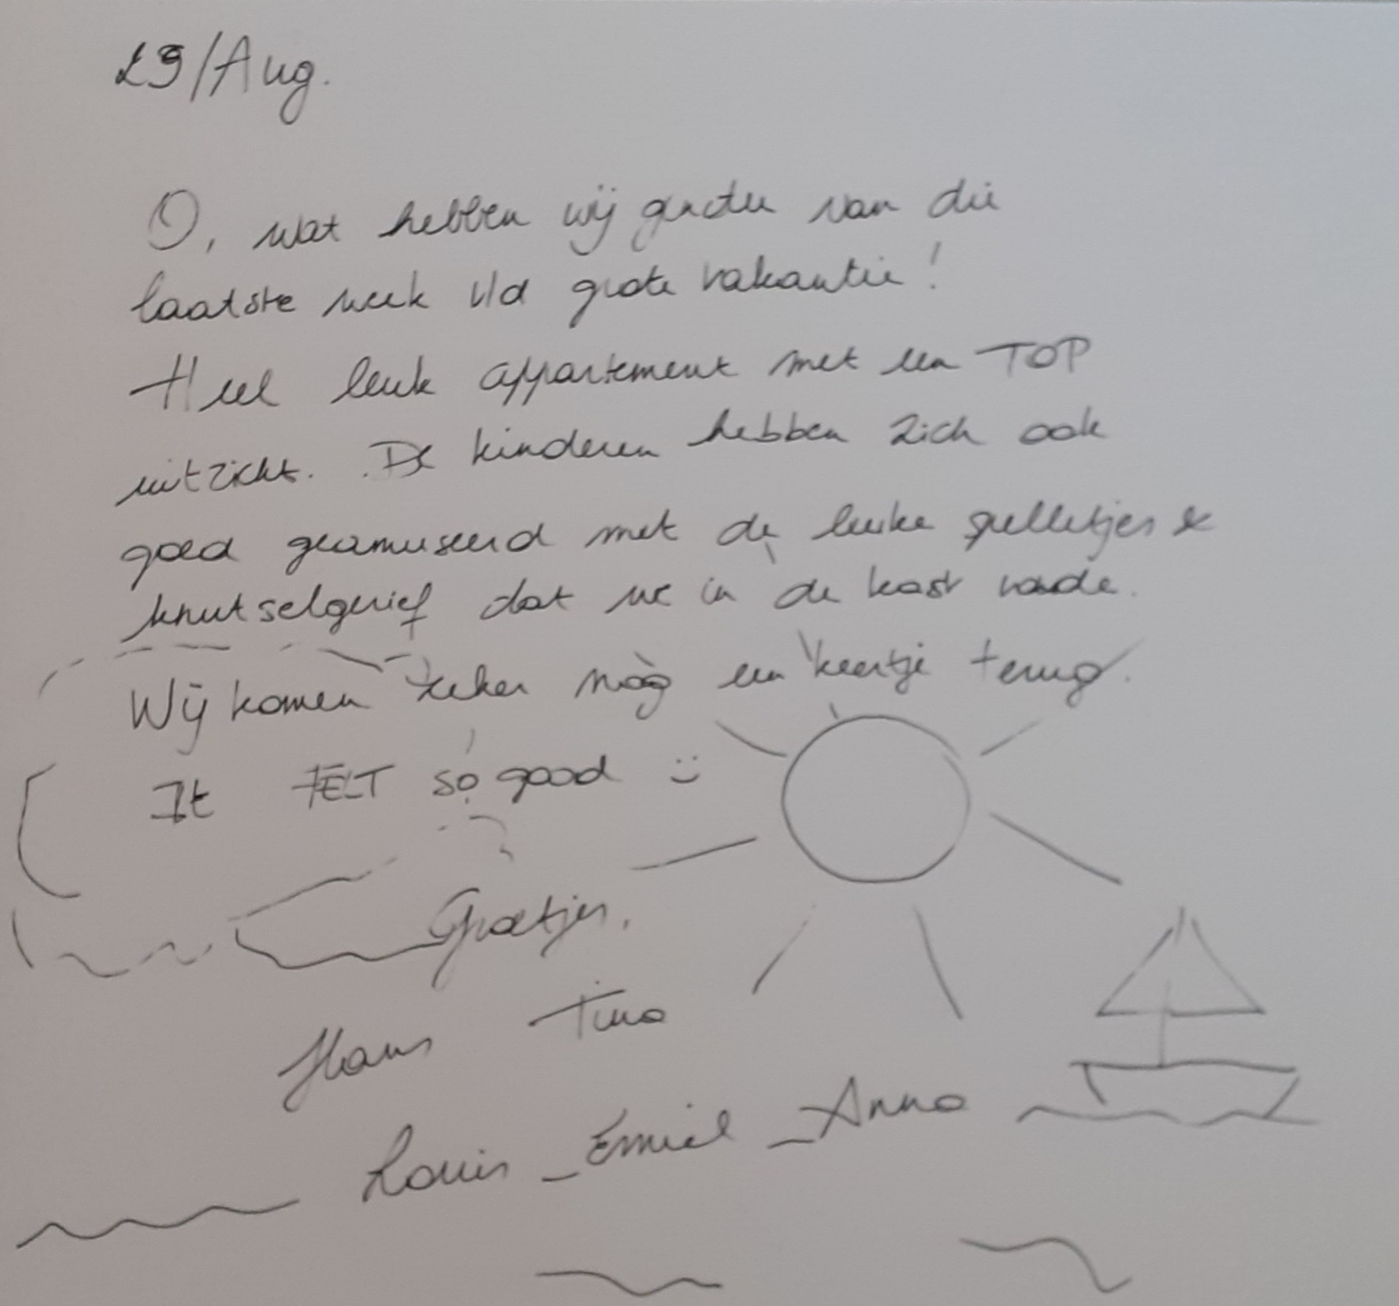 29/Aug.
O, wat hebben wij genoten van die
laatste week v/d grote vakantie!
Heel leuk appartement met een TOP
uitzicht. De kinderen hebben zich ook
goed geamuseerd met de leuke spelletjes &
knutselgerief dat we in de kast vonde.
Wij komen zeker nòg een keertje terug.
It FELT so good :)
Groetjes,
Hans Tina
Louis _ Emiel _ Anna